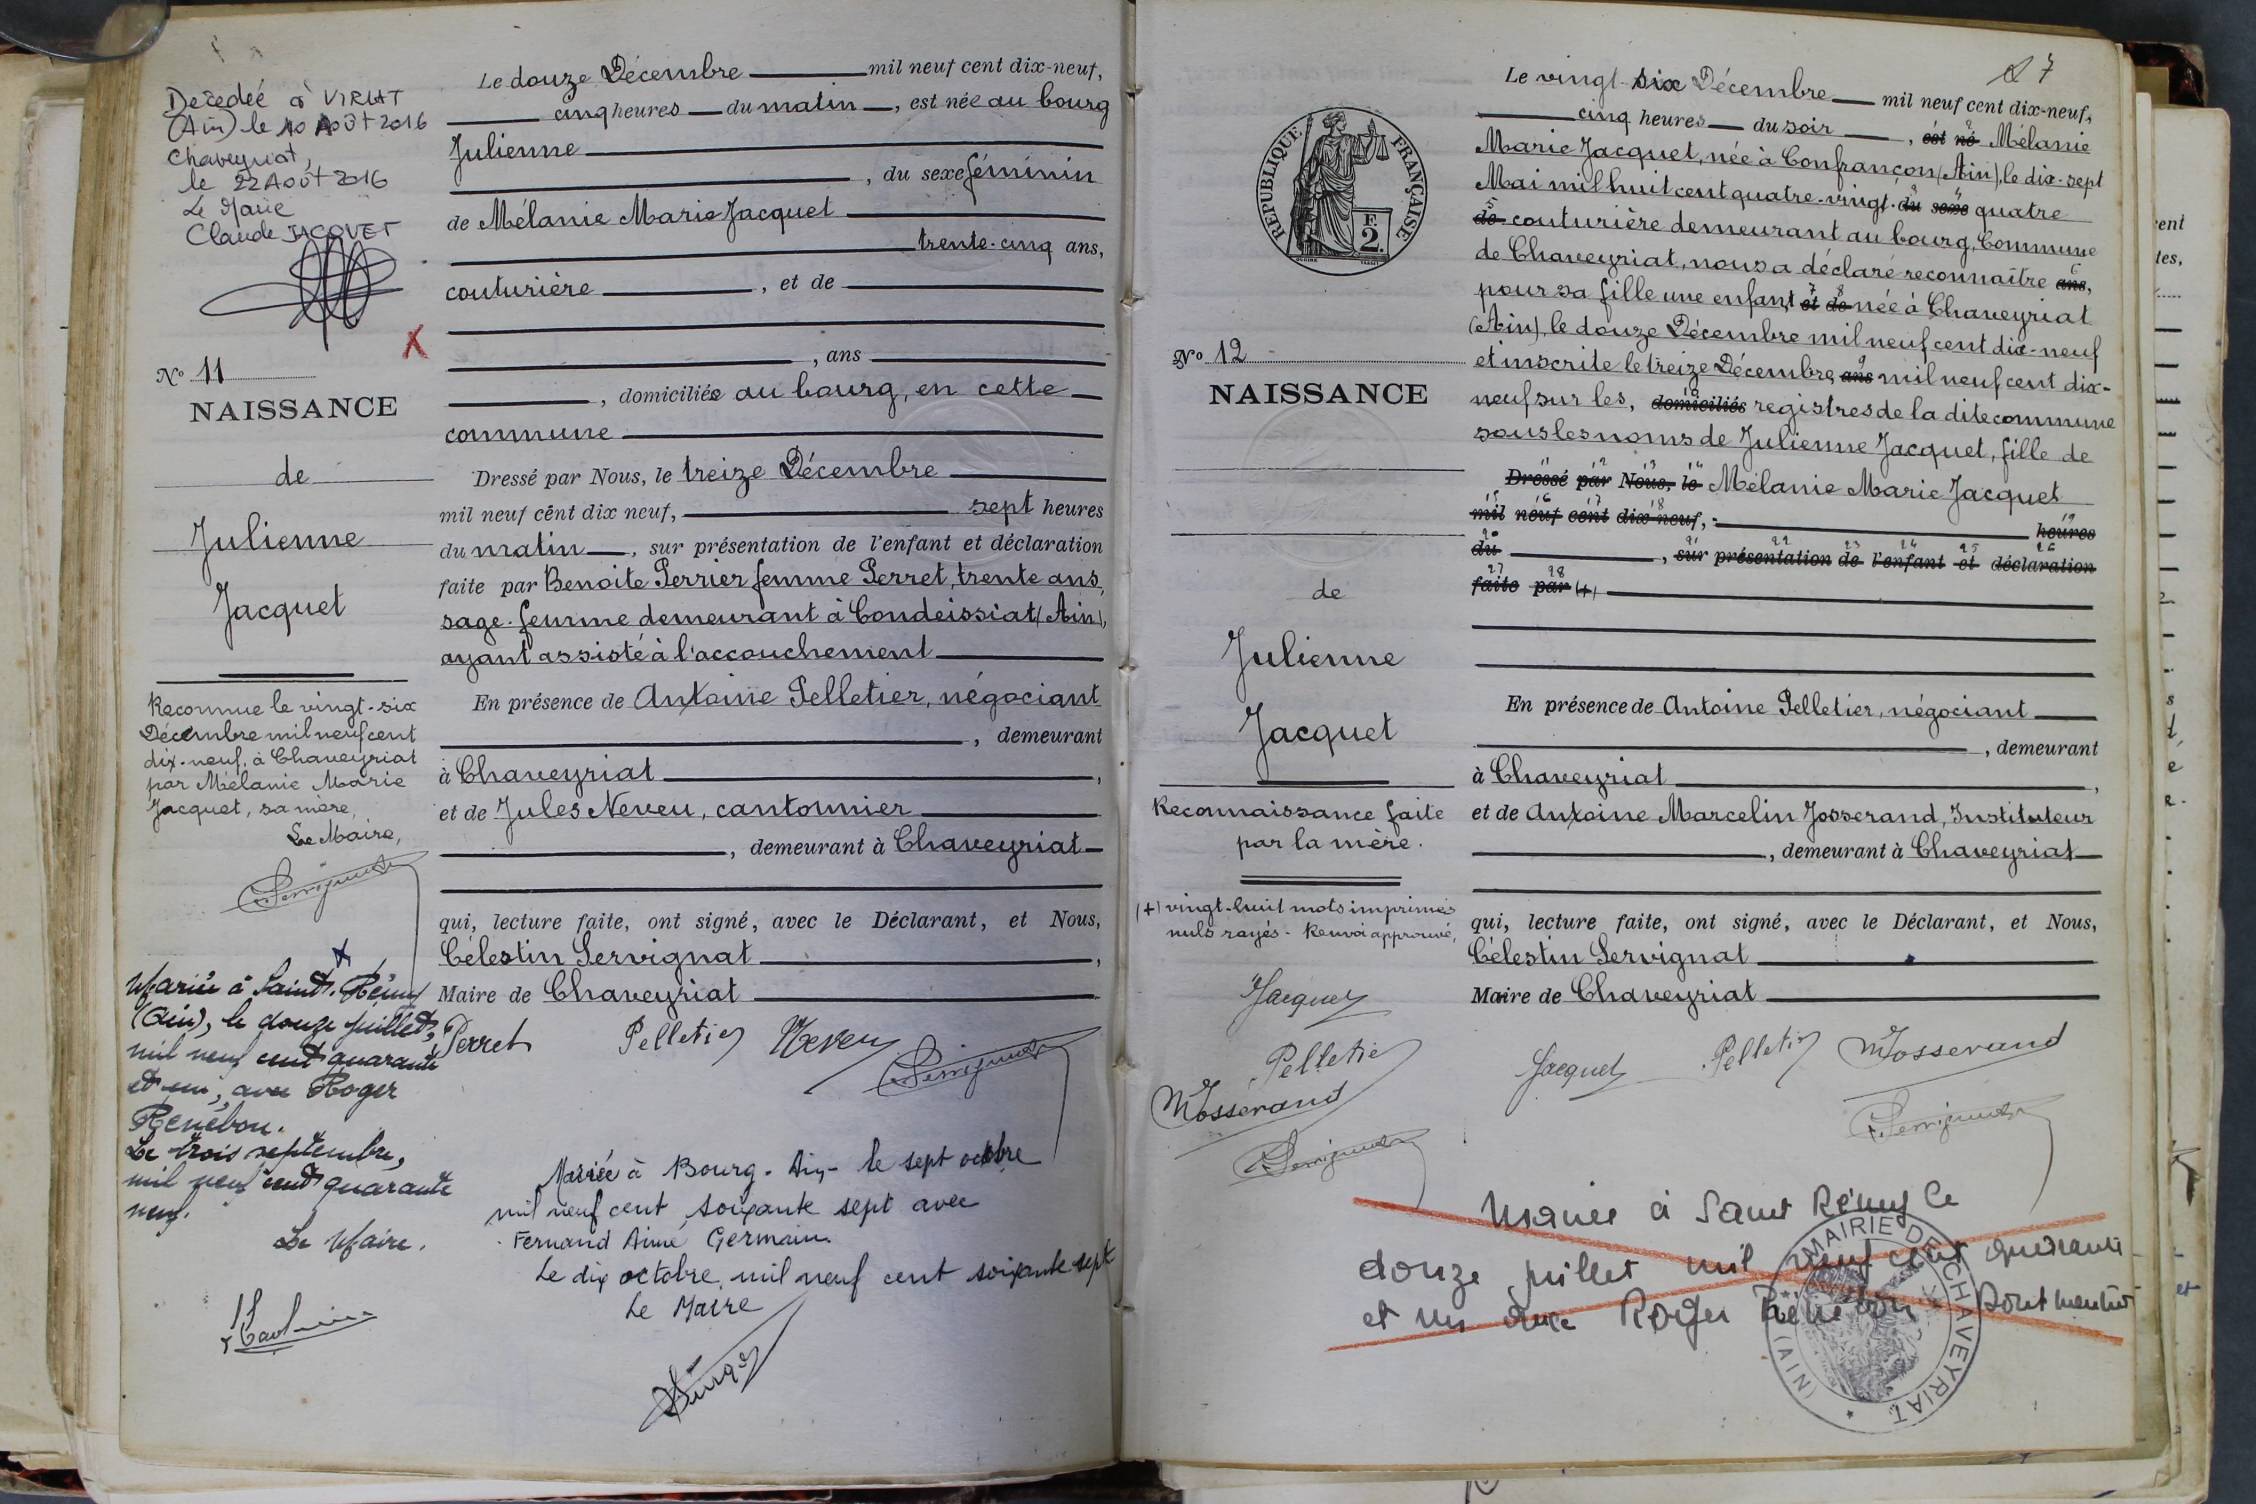 Decedée à VIRIAT
(Ain) le 10 Août 2016
Chaveyriat,
le 22 Août 2016
Le Maire
Claude JACQUET
X
No 11
NAISSANCE
de
Julienne
Jacquet
Reconnue le vingt-six
Décembre mil neuf cent
dix-neuf, à Chaveyriat
par Mélanie Marie
Jacquet, sa mère,
Le Maire,
C. Servignat
Mariée à Saint-Rémy
(Ain), le douze juillet,
mil neuf cent quarante
et un, avec Roger
Renébon.
Le trois septembre,
mil neuf cent quarante
neuf.
Le Maire.
Le douze Décembre mil neuf cent dix-neuf,
cinq heures du matin, est née au bourg
Julienne
, du sexe féminin
de Mélanie Marie Jacquet
trente-cinq ans,
couturière, et de
, ans
, domiciliée au bourg, en cette
commune
Dressé par Nous, le treize Décembre
mil neuf cent dix neuf, sept heures
du matin, sur présentation de l'enfant et déclaration
faite par Benoite Perrier femme Perret, trente ans,
sage-femme demeurant à Condeissiat (Ain),
ayant assisté à l'accouchement
En présence de Antoine Pelletier, négociant
, demeurant
à Chaveyriat,
et de Jules Neveu, cantonnier
, demeurant à Chaveyriat
qui, lecture faite, ont signé, avec le Déclarant, et Nous,
Célestin Servignat,
Maire de Chaveyriat
Perret Pelletier Neveu C. Servignat
Mariée à Bourg-Ain- le sept octobre
mil neuf cent soixante sept avec
Fernand Aimé Germain.
Le dix octobre mil neuf cent soixante sept
Le Maire
27
RÉPUBLIQUE FRANÇAISE
F.
2.
No 12
NAISSANCE
de
Julienne
Jacquet
Reconnaissance faite
par la mère.
(+) vingt-huit mots imprimés
nuls rayés - Renvoi approuvé,
Jacquet
Pelletier
Mosserand
C. Servignat
Le vingt-six Décembre mil neuf cent dix-neuf,
cinq heures du soir, est né Mélanie
Marie Jacquet, née à Confrançon (Ain), le dix-sept
Mai mil huit cent quatre-vingt- du sexe quatre
de couturière demeurant au bourg, Commune
de Chaveyriat, nous a déclaré reconnaître ans,
pour sa fille une enfant et de née à Chaveyriat
(Ain), le douze Décembre mil neuf cent dix-neuf
et inscrite le treize Décembre ans mil neuf cent dix-
neuf sur les, domiciliés registres de la dite commune
sous les noms de Julienne Jacquet, fille de
Dressé par Nous, le Mélanie Marie Jacquet
mil neuf cent dix neuf, heures
du, sur présentation de l'enfant et déclaration
faite par (+)
En présence de Antoine Pelletier, négociant
, demeurant
à Chaveyriat,
et de Antoine Marcelin Josserand, Instituteur
, demeurant à Chaveyriat
qui, lecture faite, ont signé, avec le Déclarant, et Nous,
Célestin Servignat
Maire de Chaveyriat
Jacquet Pelletier Mosserand
C. Servignat
Mariée à Saint Rémy le
douze juillet mil neuf cent quarante
et un avec Roger Renebon
MAIRIE DE CHAVEYRIAT
(AIN)